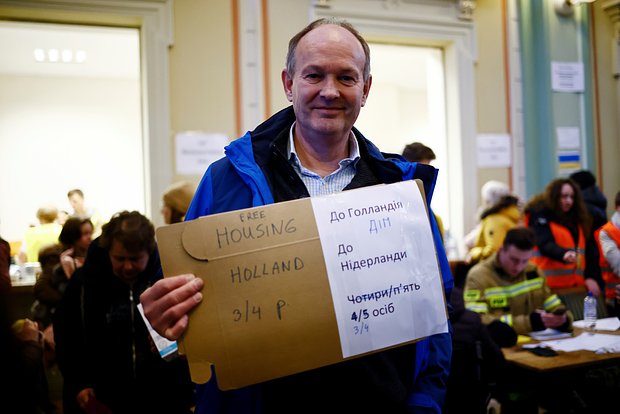 FREE
HOUSING
HOLLAND
3/4 P.
До Голландія
ДІМ
До
Нідерланди
Чотири/п'ять
4/5 осіб
3/4